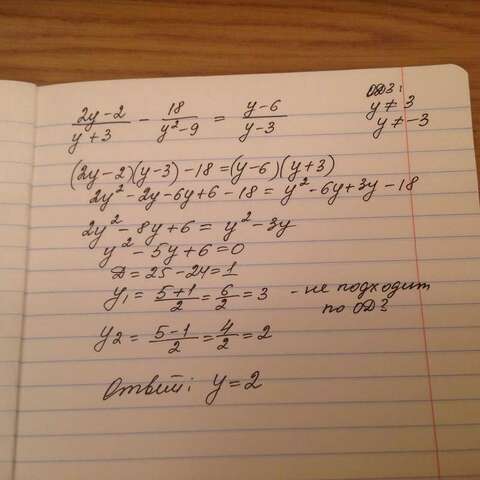 (2y-2)/(y+3) - 18/(y²-9) = (y-6)/(y-3)
ОДЗ:
y≠3
y≠-3
(2y-2)(y-3)-18=(y-6)(y+3)
2y²-2y-6y+6-18=y²-6y+3y-18
2y²-8y+6=y²-3y
y²-5y+6=0
D=25-24=1
y₁=(5+1)/2=6/2=3 - не подходит
по ОДЗ
y₂=(5-1)/2=4/2=2
Ответ: y=2